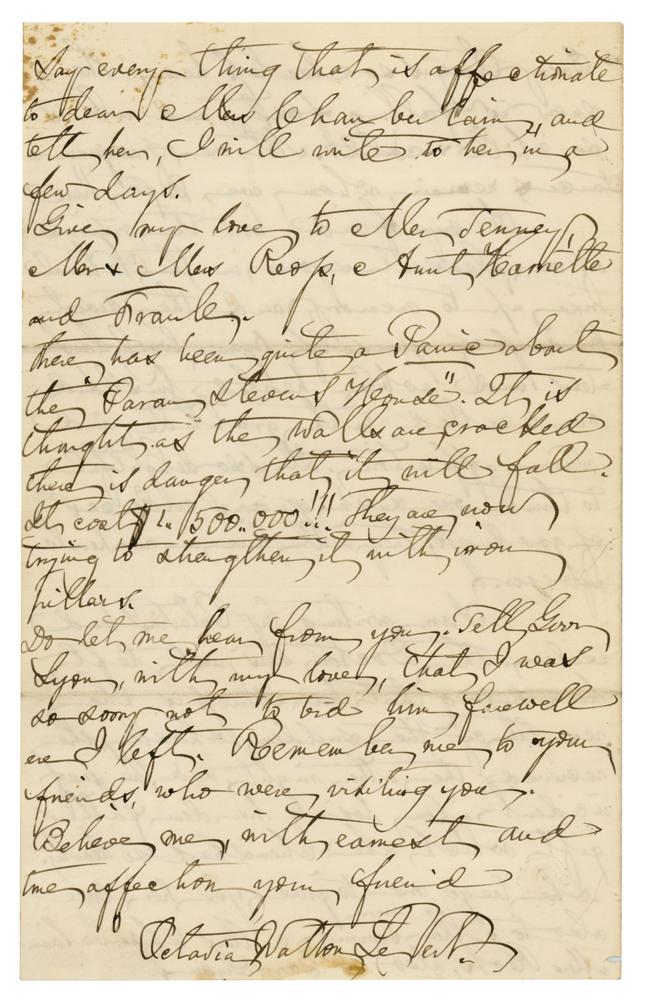 Say every thing that is affectionate
to dear Mrs Chamberlain, and
tell her, I will write to her in a
few days.
Give my love to Mrs Tenney,
Mr & Mrs Reop, Aunt Harriette
and Frank.
There has been quite a Panic about
the "Paran Stevens House". It is
thought as the walls are cracked
there is danger that it will fall.
It cost $1.500.000!!! They are now
trying to strengthen it with iron
pillars.
Do let me hear from you. Tell Govr
Lyon, with my love, that I was
so sorry not to bid him farewell
ere I left. Remember me to your
friends, who were visiting you.
Believe me, with earnest and
true affection your friend
Octavia Walton Le Vert.